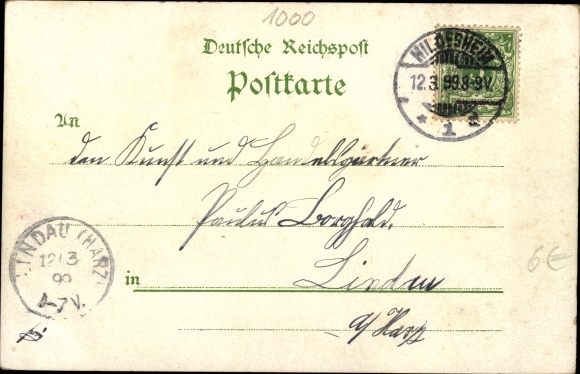 1000
Deutsche Reichspost
Postkarte
HILDESHEIM
12.3.99.8-9V.
* 1 *
An
den Kunst und Handelsgärtner
Paulus
Lindau
in
a/Harz
LINDAU (HARZ)
12/3
99
6€